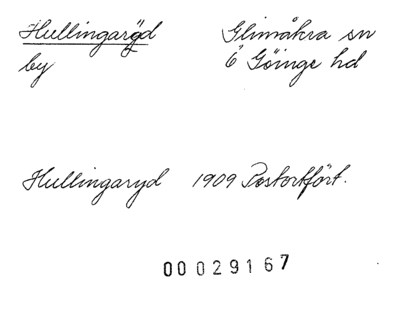 Hullingaröd Glimåkra sn
by Ö Göinge hd
Hullingaryd 1909 Postortfört.
00029167